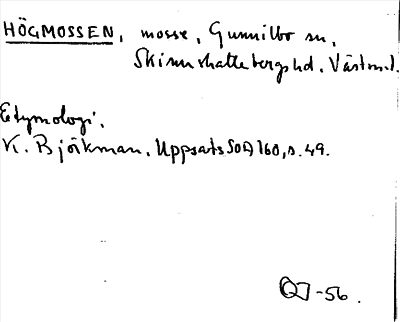 HÖGMOSSEN, mosse, Gunnilbo sn,
Skinnskattebergs hd, Västml.
Etymologi.
K. Björkman, Uppsats SOA 160, s. 49.
OJ-56.